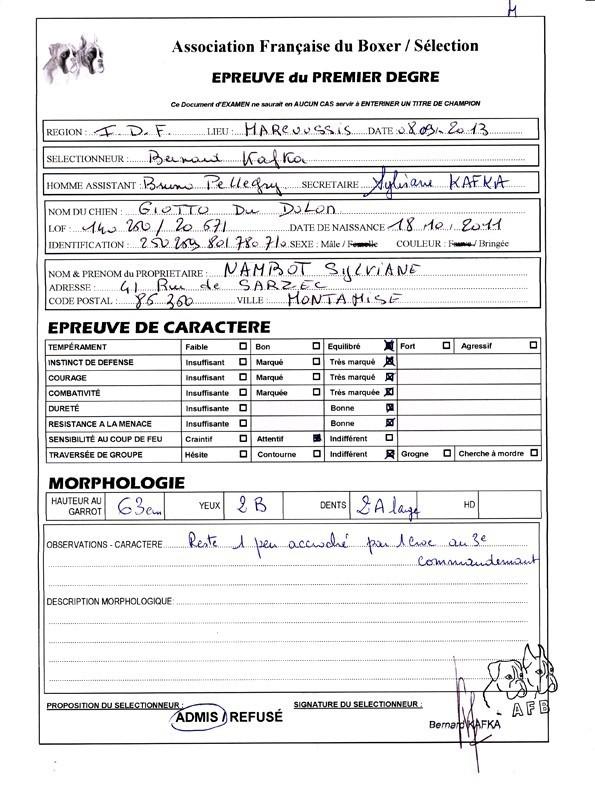 M
Association Française du Boxer / Sélection
EPREUVE du PREMIER DEGRE
Ce Document d'EXAMEN ne saurait en AUCUN CAS servir à ENTERINER UN TITRE DE CHAMPION
REGION : I.D.F. LIEU : MARCOUSSIS DATE 08.09.2013
SELECTIONNEUR : Bernard Kafka
HOMME ASSISTANT : Bruno Pellegry SECRETAIRE Sylviane KAFKA
NOM DU CHIEN : GIOTTO Du DOLON
LOF : 140 260 / 20 671 DATE DE NAISSANCE 18.10.2011
IDENTIFICATION : 250 269 801 780 710 SEXE : Mâle / Femelle COULEUR : Fauve / Bringée
NOM & PRENOM du PROPRIETAIRE : NAMBOT SYLVIANE
ADRESSE : 41 Rue de SARZEC
CODE POSTAL : 86 360 VILLE : MONTAMISE
EPREUVE DE CARACTERE
TEMPÉRAMENT Faible Bon Equilibré Fort Agressif
INSTINCT DE DEFENSE Insuffisant Marqué Très marqué
COURAGE Insuffisant Marqué Très marqué
COMBATIVITÉ Insuffisante Marquée Très marquée
DURETÉ Insuffisante Bonne
RESISTANCE A LA MENACE Insuffisante Bonne
SENSIBILITÉ AU COUP DE FEU Craintif Attentif Indifférent
TRAVERSÉE DE GROUPE Hésite Contourne Indifférent Grogne Cherche à mordre
MORPHOLOGIE
HAUTEUR AU GARROT 63cm YEUX 2B DENTS 2A large HD
OBSERVATIONS - CARACTERE Reste 1 peu accroché par 1 croc au 3e
commandemant
DESCRIPTION MORPHOLOGIQUE:
PROPOSITION DU SELECTIONNEUR : SIGNATURE DU SELECTIONNEUR :
ADMIS / REFUSÉ
Bernard KAFKA
AFB